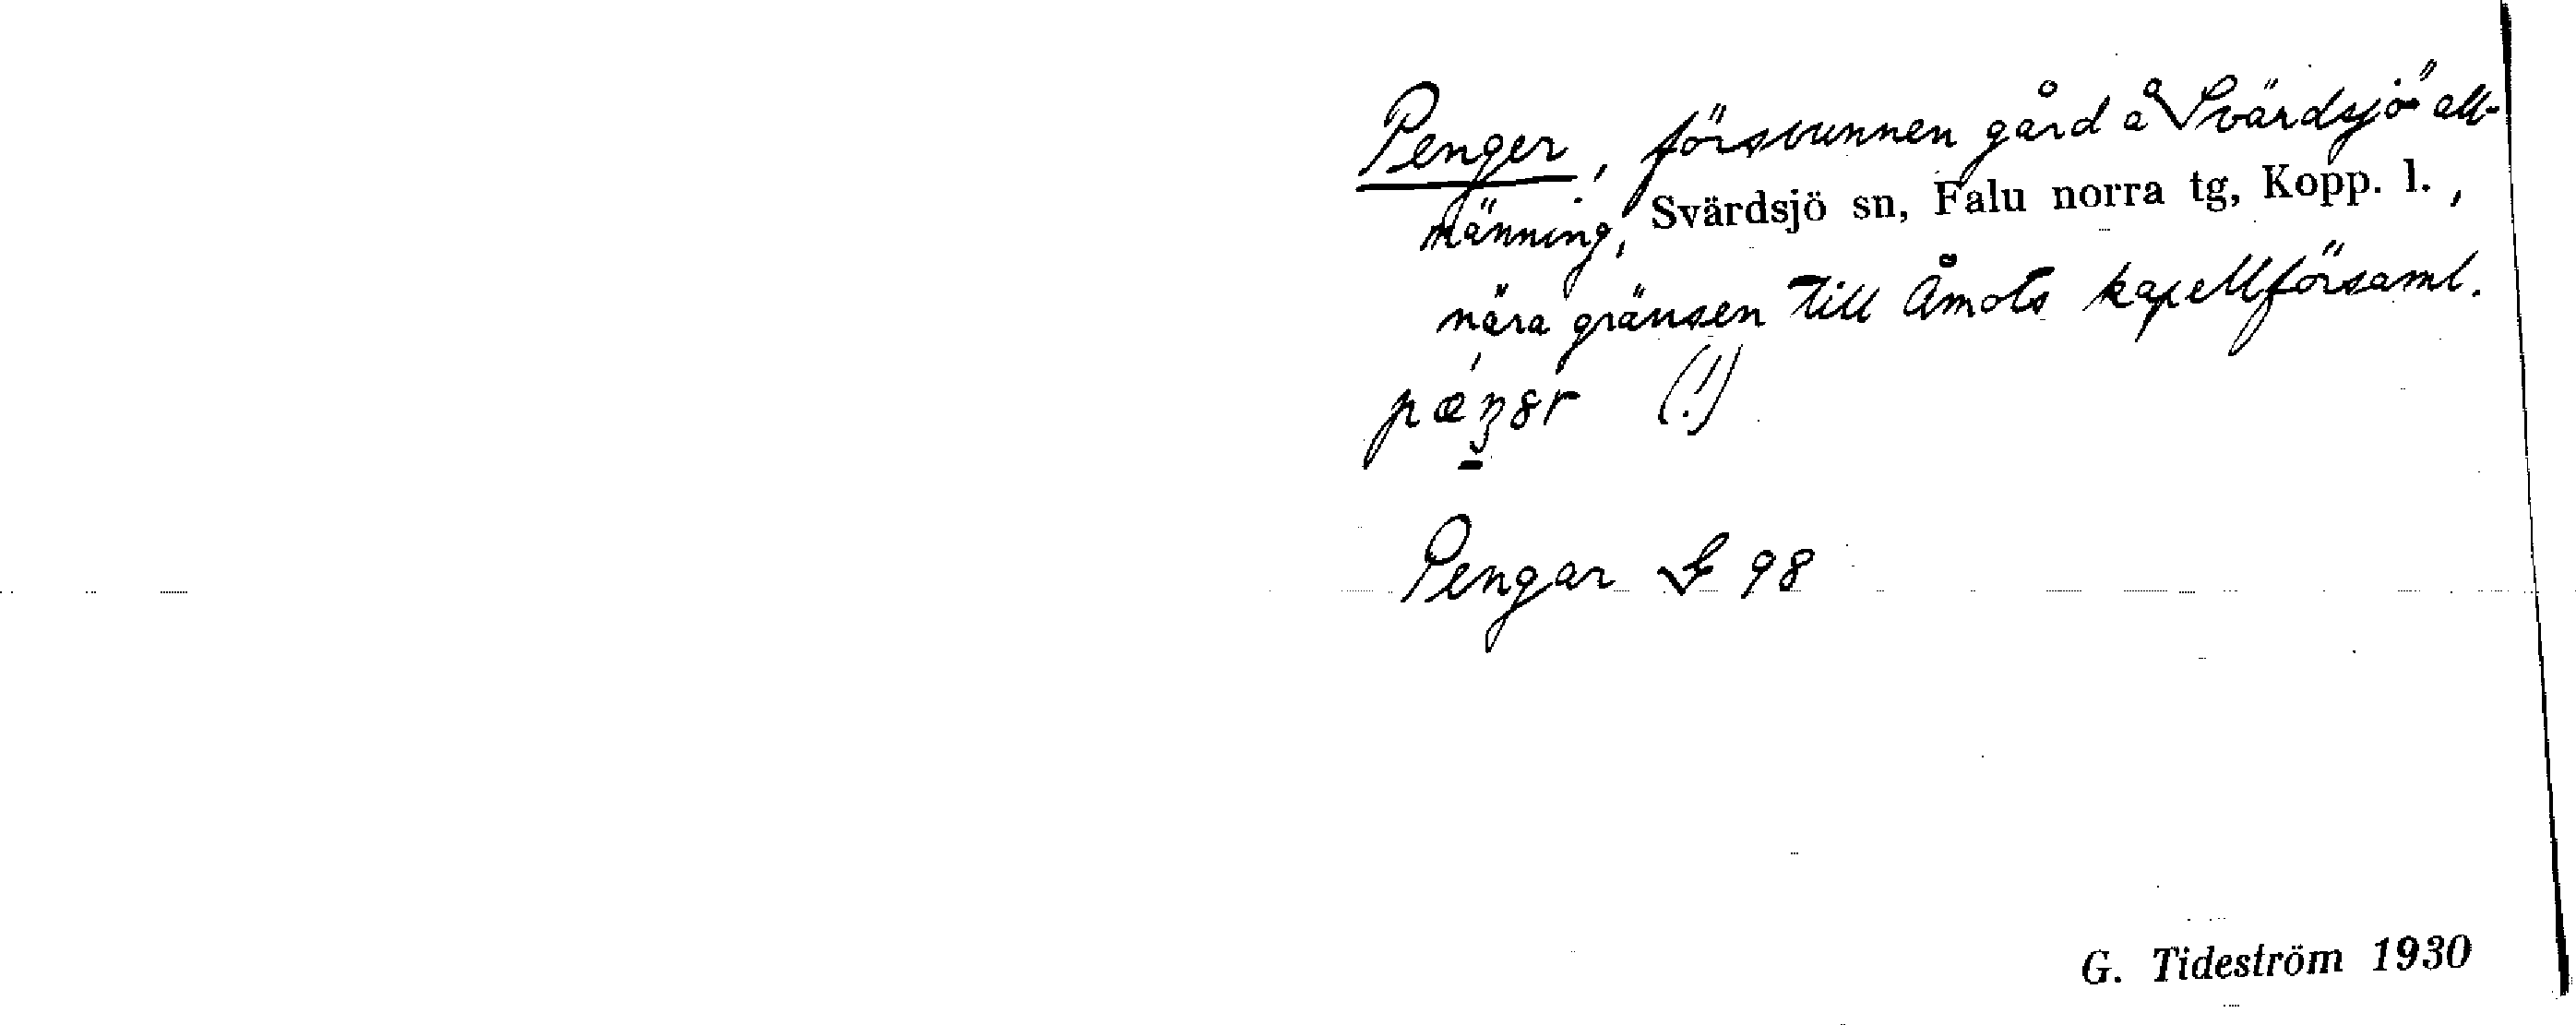 Penger, försvunnen gård å Svärdsjö all-
männing, Svärdsjö sn, Falu norra tg, Kopp. l.,
nära gränsen till Åmots kapellförsaml.
(!)
Pengar G 98
G. Tideström 1930